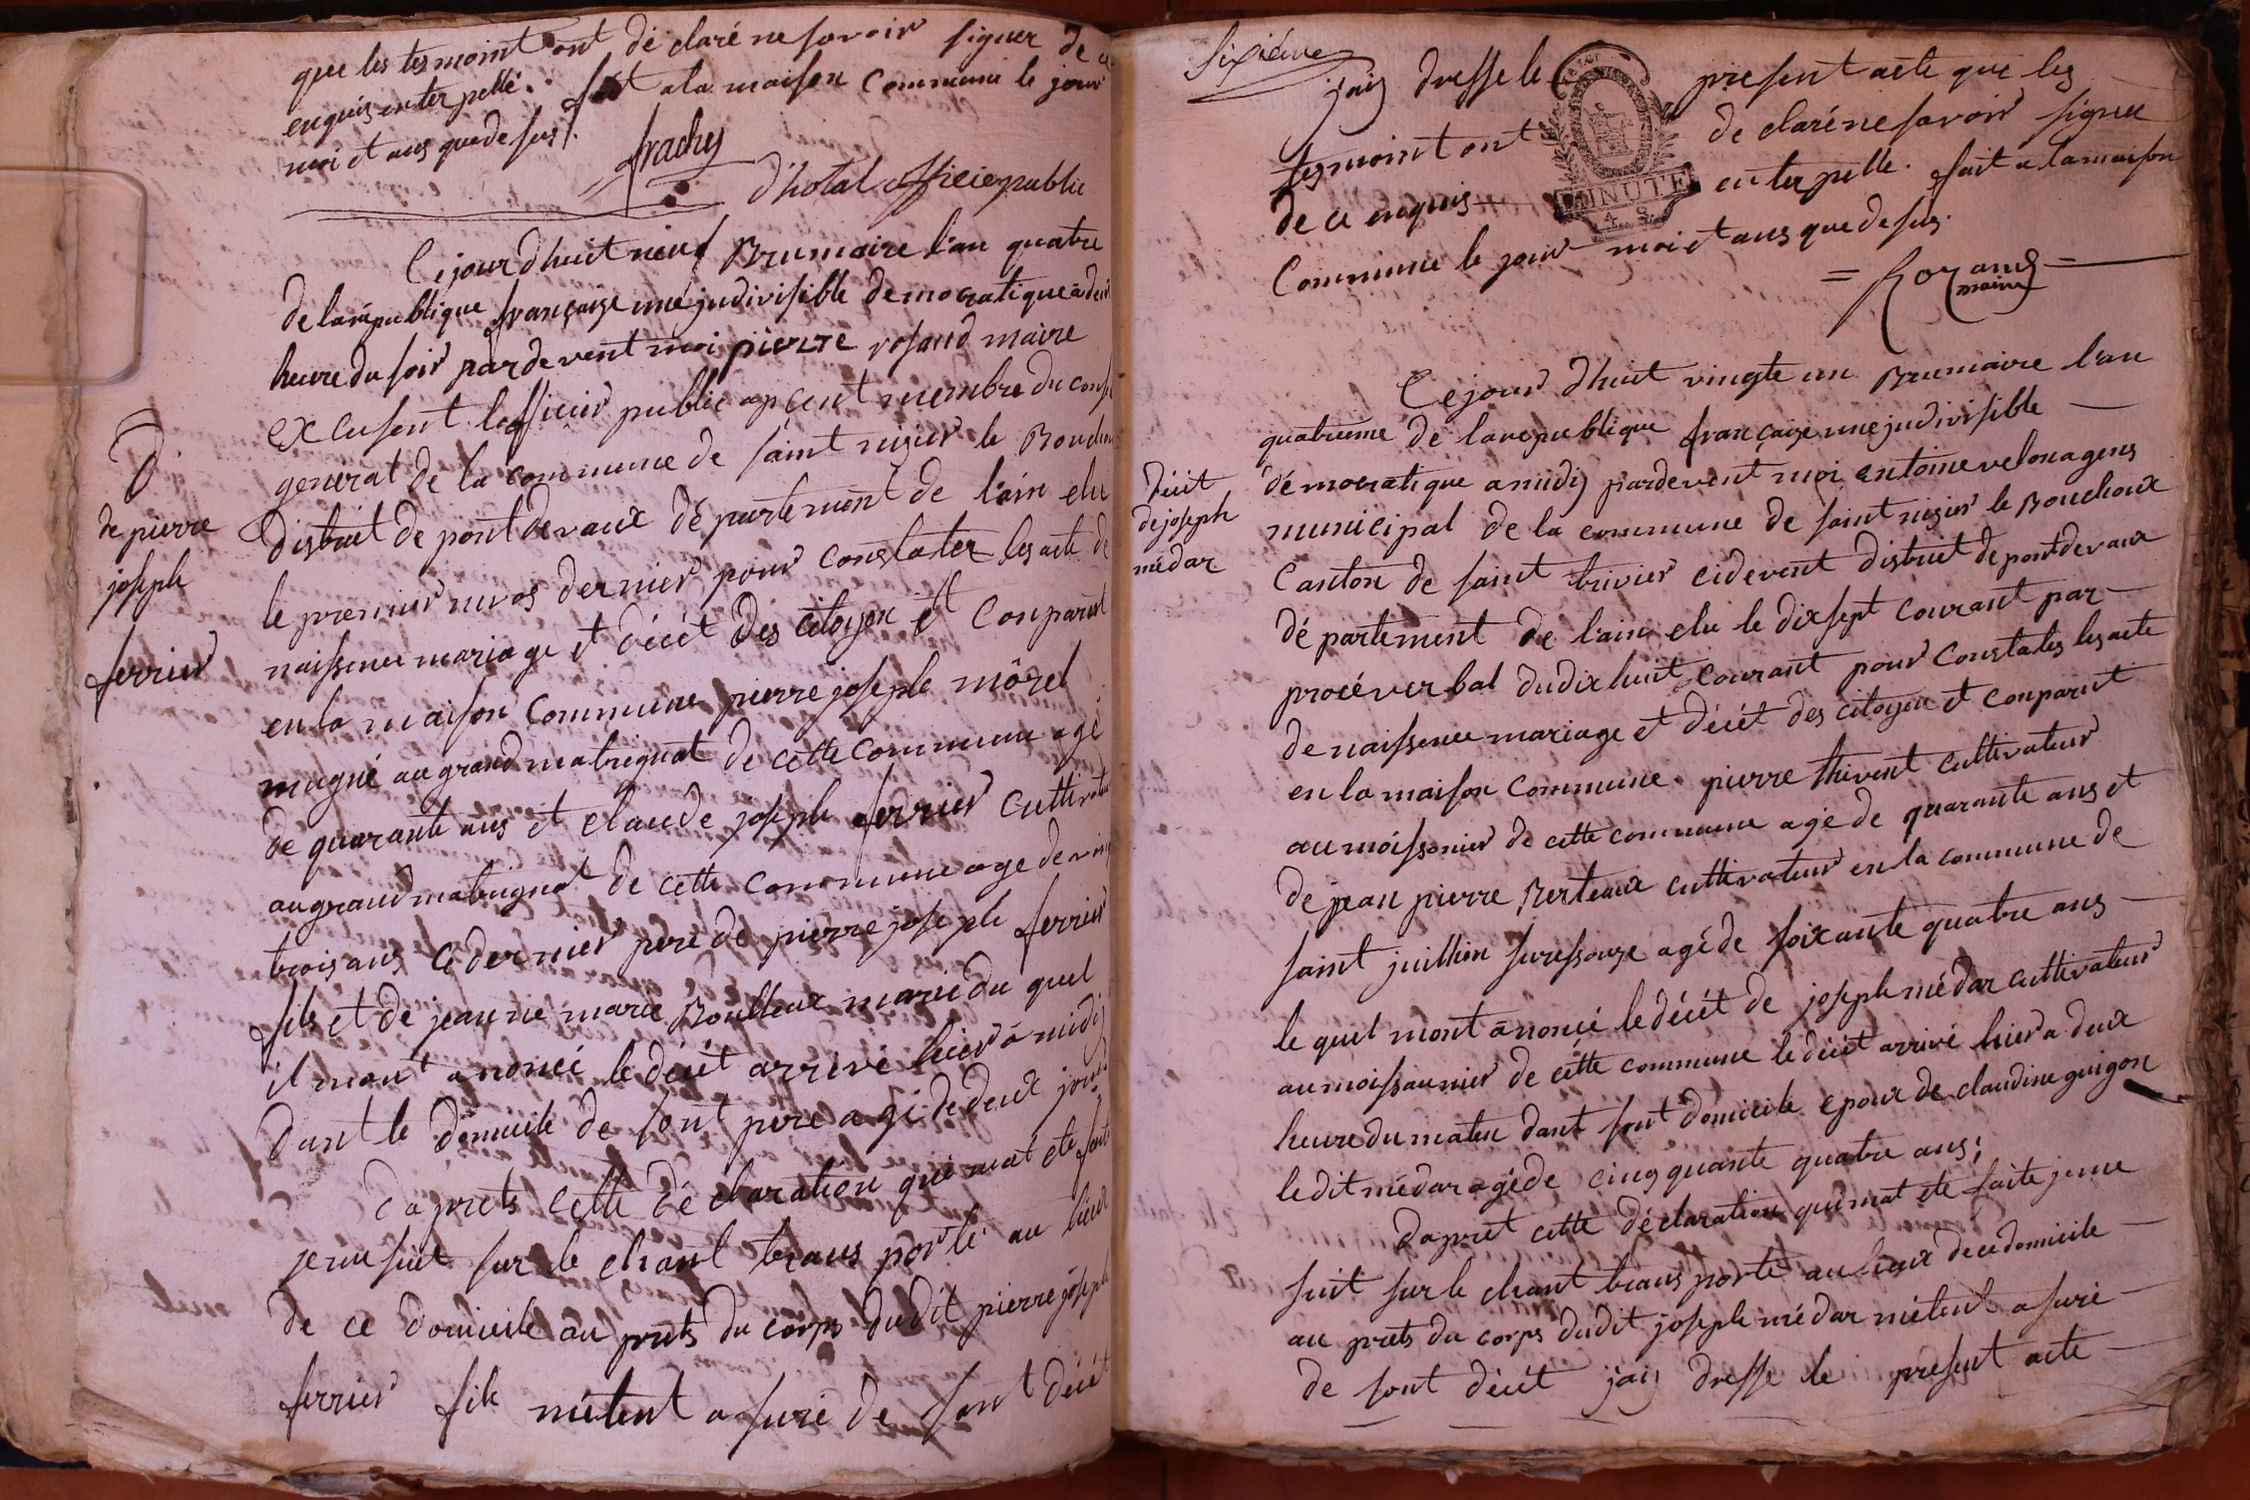 que les tesmoint ont déclaré ne savoir signer de ce
enquis enterpellé. fait a la maison commune le jour
moi et ans que de sus.
frachy
d'hotal officie public
Cejourdhuit neuf Brumaire l'an quatre
de la republique françaize une judivisible democratique a deux
heure du soir pardevent moi pierre rosand maire
excusent lofficier public apcent membre du conse
generat de la commune de saint nizier le Bouchou
distrait de pont de vaux département de l'ain elu
le premier nivos dernier pour constater les acte de
naissence mariage et décét des citoyen et Conparut
en la maison commune pierre joseph môrel
mugné au grand matrignat de cette commune agé
de quarante ans et claude joseph ferrier cultivateu
au grand matrignat de cette commune age de vin
trois ans ce dernier pere de pierre joseph ferrier
fils et de jeanne marie Boulleux marié du quel
il mont anoncé le décét arrivé hier a midi
dant le démicile de sont pere agé de deux jour
D
de pierre
joseph
ferrier
daprets cette déclaration qui mat ete faite
je me suit sur le chant trans porté au lieux
de ce domicile au prets du corps dudit pierre joseph
ferrier fils métent asuré de sont décét
Sixième
jaij dresse le present acte que les
tesmoint ont de claré ne savoir signer
de ce enquis enterpelle. fait a la maison
MINUTE
4. S.
Commune le jour moi et ans que de sus.
= Rozand =
maire
Cejour dhuit vingte un Brumaire l'an
quatrieme de la republique françaize une judivisible
démocratique a midij pardevent moi entoine velon agens
municipal de la commune de saint nizier le Bouchoux
Canton de saint trivier cidevent distrait de pontdevaux
département de l'ain elu le dixsept courant par
procéverbal dudix huit courant pour constates les acte
de naissence mariage et décét des citoyen et conparut
en la maison commune pierre thivent cultivateur
au moissonier de cette commune agé de quarante ans et
de jean pierre Berteaux cultivateur en la commune de
saint juillien suressouze agé de soixante quatre ans
le quel mont anoncé le décét de joseph médar cultivateur
au moissaunier de cette commune le décét arrivé hier a deux
heure du maten dant sont domicile epoux de claudine guigon
le dit médar agé de cinq quante quatre ans;
Décét
de joseph
médar
dapret cette déclaration qui mat ete faite je me
suit sur le chant trans porté au lieux de ce domicile
au prets du corps dudit joseph médar métent asuré
de sont décét jaij dresse le present acte